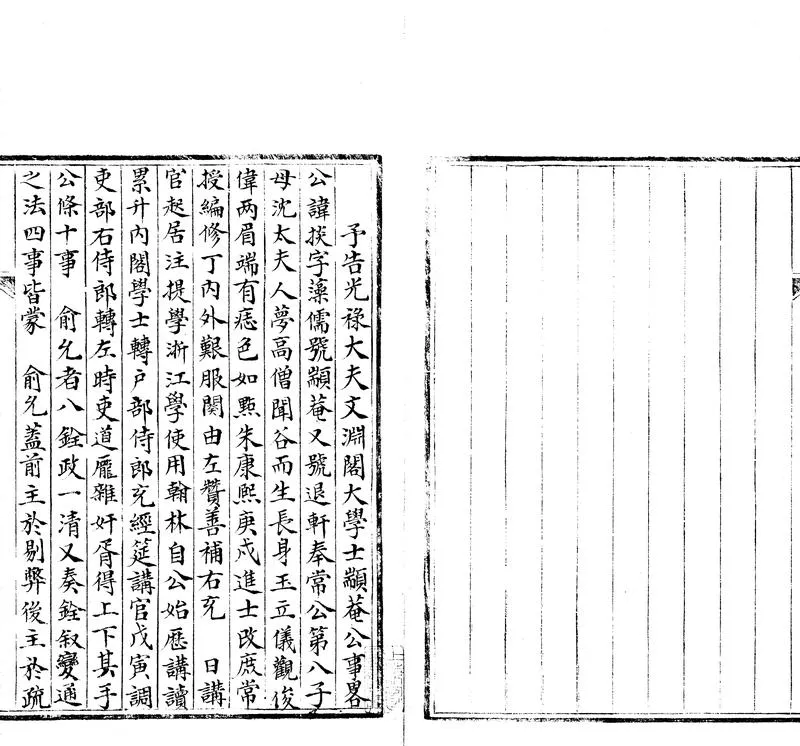 予告光祿大夫文淵閣大學士顓菴公事畧
公諱掞字藻儒號顓菴又號退軒奉常公第八子
母沈太夫人夢高僧聞谷而生長身玉立儀觀俊
偉两眉端有痣色如㸃朱康熙庚戍進士改庶常
授編修丁内外艱服闋由左贊善補右充 日講
官起居注提學浙江學使用翰林自公始歴講讀
累升内閣學士轉户部侍郎充經筵講官戊寅調
吏部右侍郎轉左時吏道龎雜奸胥得上下其手
公條十事 俞允者八銓政一清又奏銓叙變通
之法四事皆蒙 俞允蓋前主於剔弊後主於疏